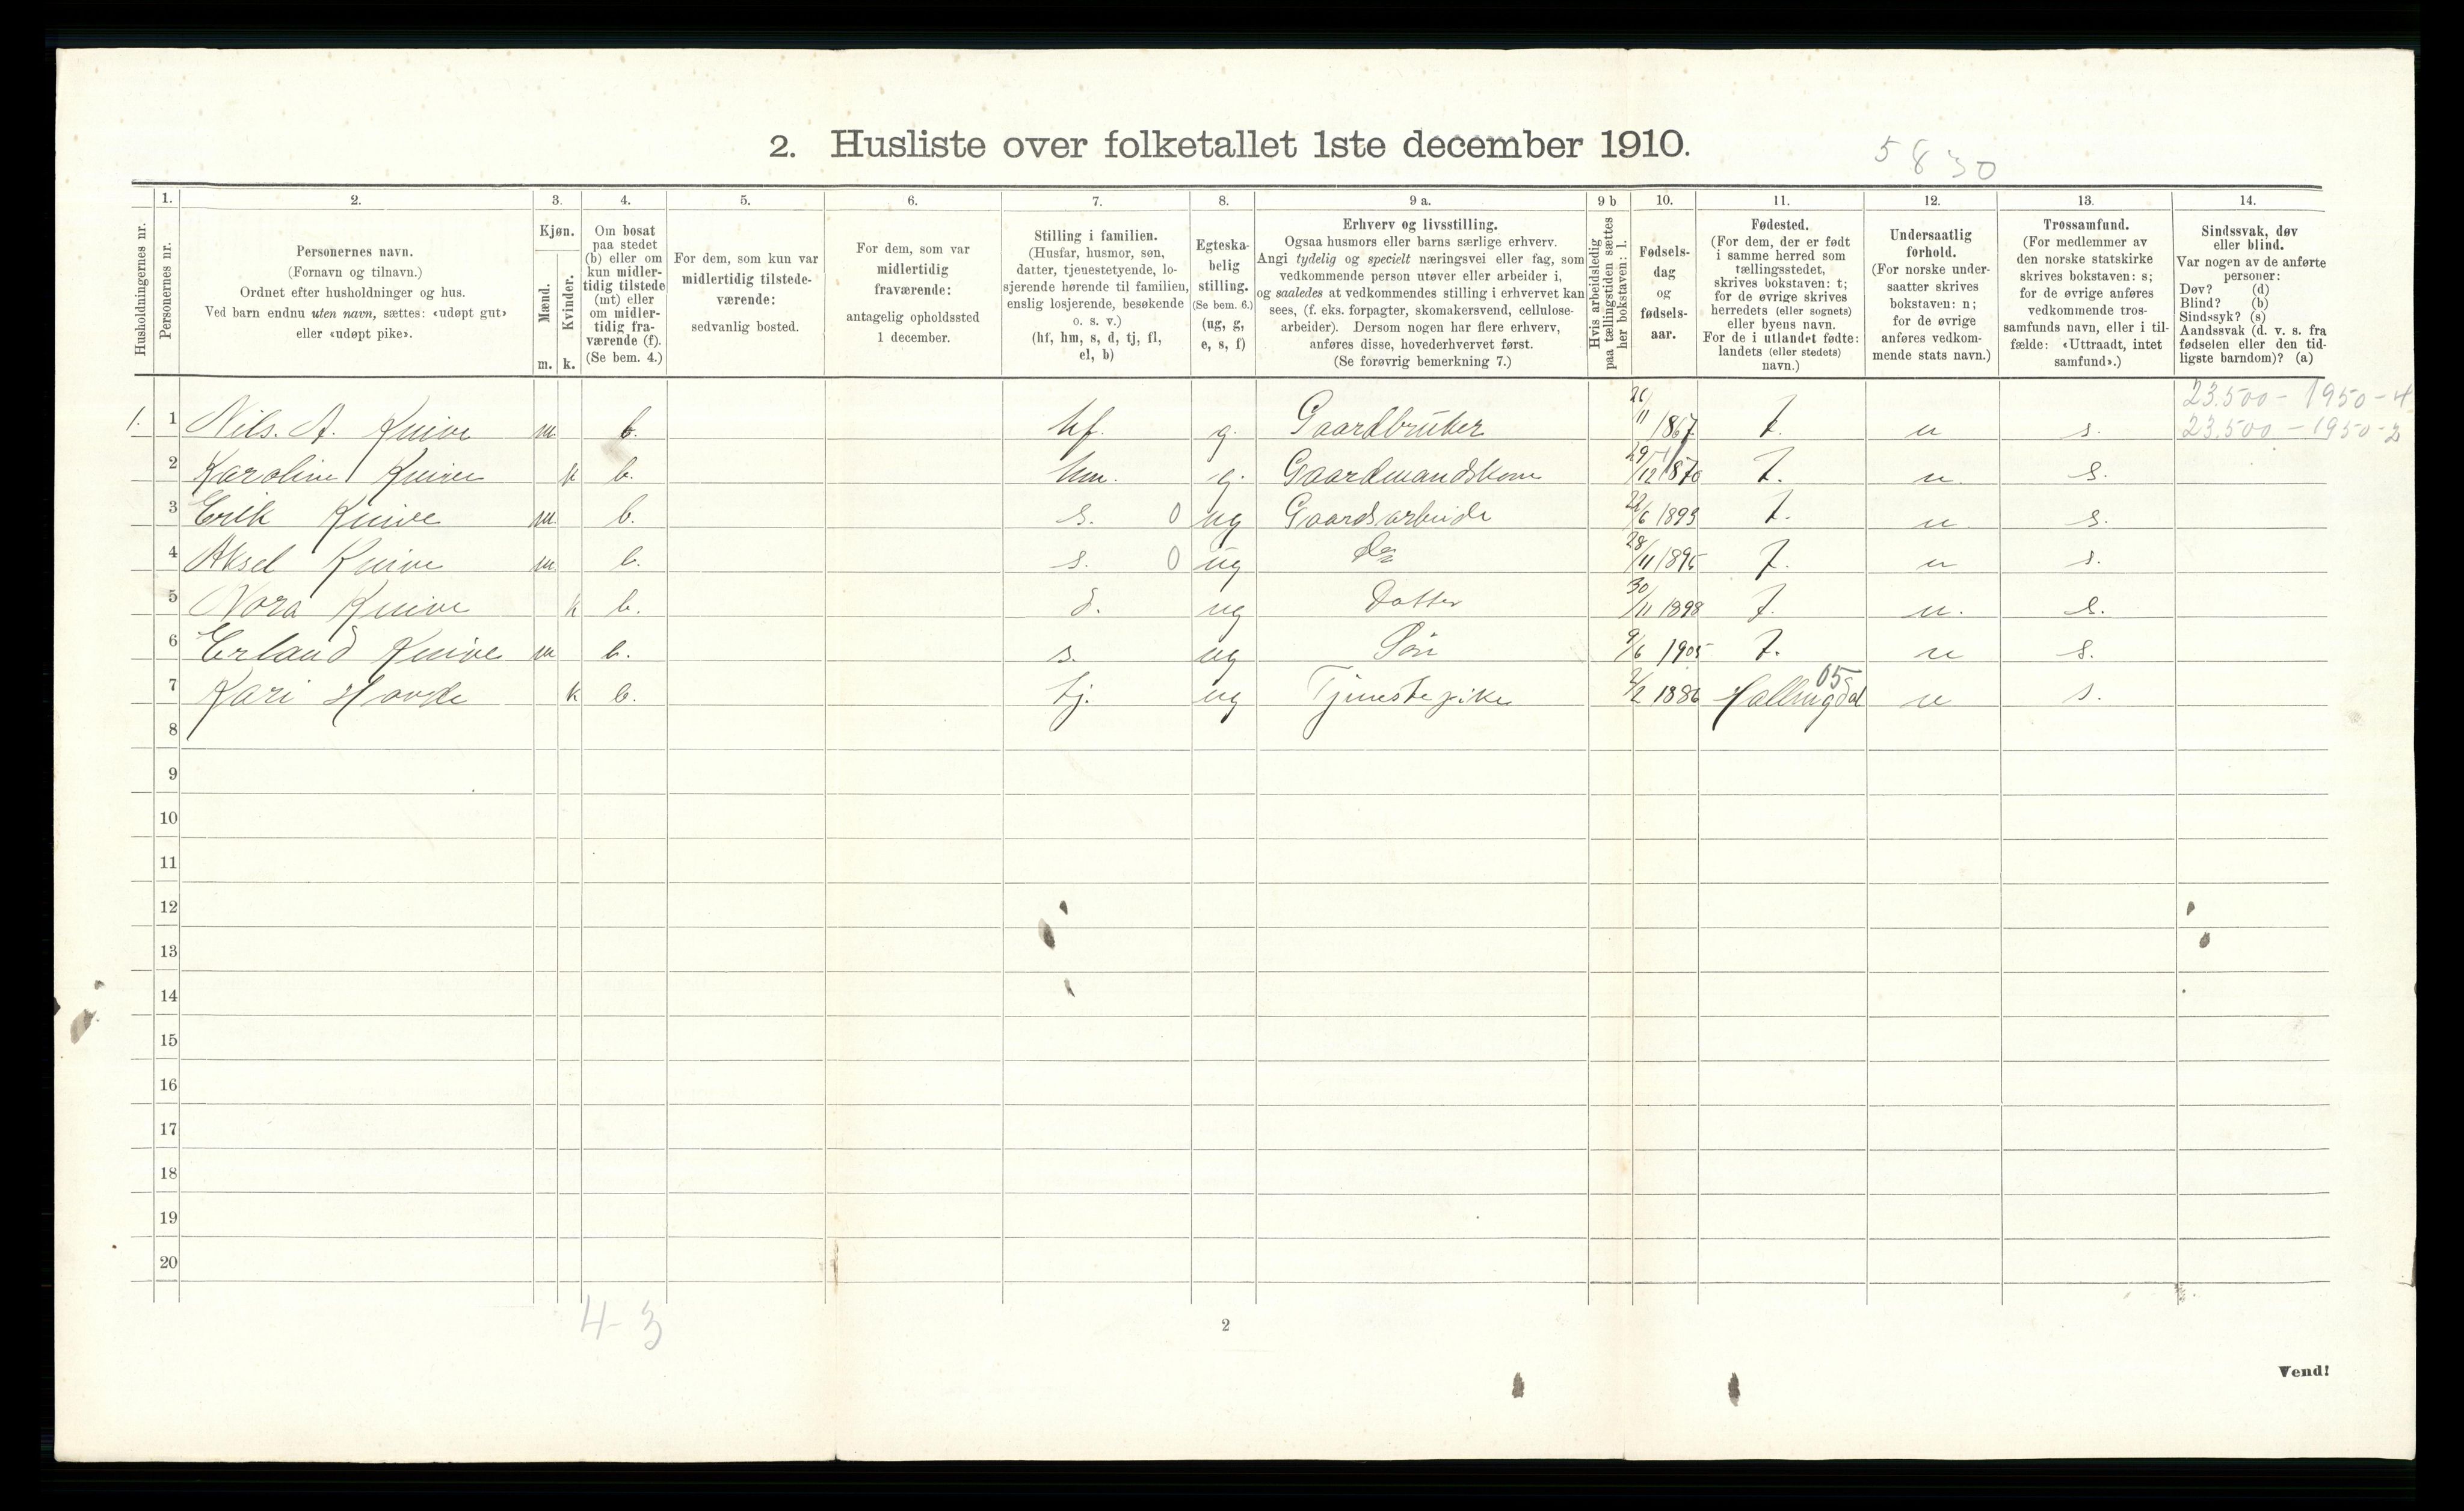 2. Husliste over folketallet 1ste december 1910.
5830
Husholdningernes nr.
1.
Personernes nr.
2.
Personernes navn.
(Fornavn og tilnavn.)
Ordnet efter husholdninger og hus.
Ved barn endnu uten navn, sættes: «udøpt gut»
eller «udøpt pike».
3.
Kjøn.
Mænd.
Kvinder.
m. k.
4.
Om bosat
paa stedet
(b) eller om
kun midler-
tidig tilstede
(mt) eller
om midler-
tidig fra-
værende (f).
(Se bem. 4.)
5.
For dem, som kun var
midlertidig tilstede-
værende:
sedvanlig bosted.
6.
For dem, som var
midlertidig
fraværende:
antagelig opholdssted
1 december.
7.
Stilling i familien.
(Husfar, husmor, søn,
datter, tjenestetyende, lo-
sjerende hørende til familien,
enslig losjerende, besøkende
o. s. v.)
(hf, hm, s, d, tj, fl,
el, b)
8.
Egteska-
belig
stilling.
(Se bem. 6.)
(ug, g,
e, s, f)
9 a.
Erhverv og livsstilling.
Ogsaa husmors eller barns særlige erhverv.
Angi tydelig og specielt næringsvei eller fag, som
vedkommende person utøver eller arbeider i,
og saaledes at vedkommendes stilling i erhvervet kan
sees, (f. eks. forpagter, skomakersvend, cellulose-
arbeider). Dersom nogen har flere erhverv,
anføres disse, hovederhvervet først.
(Se forøvrig bemerkning 7.)
9 b
Hvis arbeidsledig
paa tællingstiden sættes
her bokstaven: l.
10.
Fødsels-
dag
og
fødsels-
aar.
11.
Fødested.
(For dem, der er født
i samme herred som
tællingsstedet,
skrives bokstaven: t;
for de øvrige skrives
herredets (eller sognets)
eller byens navn.
For de i utlandet fødte:
landets (eller stedets)
navn.)
12.
Undersaatlig
forhold.
(For norske under-
saatter skrives
bokstaven: n;
for de øvrige
anføres vedkom-
mende stats navn.)
13.
Trossamfund.
(For medlemmer av
den norske statskirke
skrives bokstaven: s;
for de øvrige anføres
vedkommende tros-
samfunds navn, eller i til-
fælde: «Uttraadt, intet
samfund».)
14.
Sindssvak, døv
eller blind.
Var nogen av de anførte
personer:
Døv? (d)
Blind? (b)
Sindssyk? (s)
Aandssvak (d. v. s. fra
fødselen eller den tid-
ligste barndom)? (a)
23.500 - 1950 - 4
1. 1 Nils. A. Knive m. b. hf. g. Gaardbruker 26/11 1867 t. n s. 23.500 - 1950 - 2
2 Karoline Knive k b. hm. g. Gaardmandskone 29/12 1870 t. n. s.
3 Erik Knive m. b. s. 0 ug Gaardsarbeide 22/6 1893 t. n. s.
4 Aksel Knive m. b. s. 0 ug do 28/11 1895 t. n s.
5 Nora Knive k b. d. ug Datter 30/11 1898 t. n. s.
6 Erland Knive m b. s. ug Søn 9/6 1905 t. n s.
7 Kari Hovde k b. tj. ug Tjenestepike 2/2 1886 Hallingdal 05 n s.
8
9
10
11
12
13
14
15
16
17
18
19
20
4-3
2
Vend!